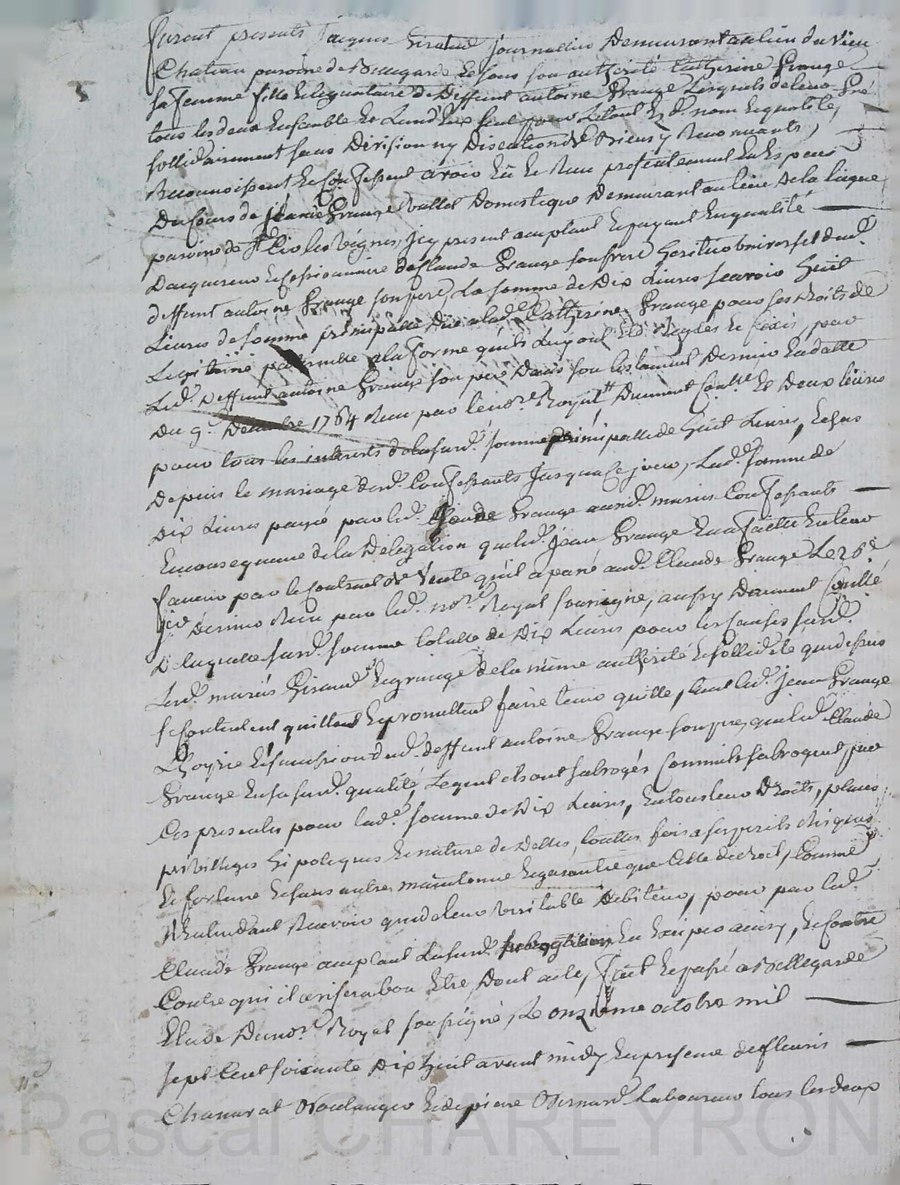 furent presents Jacques Giraud journallier Demeurant au lieu du vieu
Chateau paroisse de Bellegarde Et sous son authorité Catherine Grange
sa femme fille Et legataire de Deffunt antoine Grange Lesquels de leur gré
tous les deux Ensemble Et Lun d'Eux seul pour Le tout Esd. nom Et qualité,
sollidairement sans Division ny Discution de Biens y Renonceants,
Reconnoissent Et Confessent avoir Eu Et Receu presentement En Especes
Du Cours de Jean Grange Vallet Domestique Demeurant au lieu de la
paroisse de St les vignes, icy present acceptant Et payant En qualité
D'acquereur Et Cessionnaire de Claude Grange son frere heritier universel dud.
deffunt antoine Grange son pere, La somme de Dix Livres scavoir huit
Livres de somme principalle Due a lad. Catherine Grange pour ses droits de
Legitime a la forme quils Luy ont Eté Regles Et fixés, par
Led. Deffunt antoine Grange son pere Dans son testament Dernier En datte
Du 9e Decembre 1764 Receu par le no.re Royal Duement Conllé Et Deux livres
pour tous les interests de la susd. somme principalle de huit Livres, Echus
Depuis le mariage desd. Confessants Jusqua Ce jour, Lad. somme de
Dix Livres payée par led. Grange auxd. mariés Confessants
En consequence de la Delegation que led. Jean Grange En a faitte En leur
faveur par le Contract de Vente qu'il a passé aud. Claude Grange Le 26e
Dernier Receu par led. no.re Royal soussigné, aussy Duement Conllé
De laquelle susd. somme totalle de Dix Livres pour les Causes susd.
Lesd. mariés Giraud Et Grange de la même authorité Et sollidité que dessus
se Contentent quittent Et promettent faire tenir quitte, tant led. Jean Grange
L'hoyrie Et succession dud. deffunt antoine Grange son pere, que led. Claude
Grange En sa susd. qualité, Lequel ils ont subrogés Comme ils subrogent par
Ces presentes pour lad. somme de Dix Livres, En tous leur Droits, places
privilleges hipoteques Et nature de Dettes, touttes fois a ses perils risques
Et fortune Et sans autre maintenue Et garantie que Celle de droit, Comme
N'Entendant Recevoir que de leur veritable Debiteur, pour par led.
Claude Grange acceptant La susd. subrogation En Exiper ainsy, Et Contre
Contre qui il avisera bon Etre, Dont acte, fait Et passé a Bellegarde
Etude Dunore Royal soussigné, Le onzieme octobre mil
sept Cent soixante Dix huit avant midy En presence de fleuris
Chanavat Boulanger Et de pierre Bernard Laboureur tous les deux
Pascal CHAREYRON